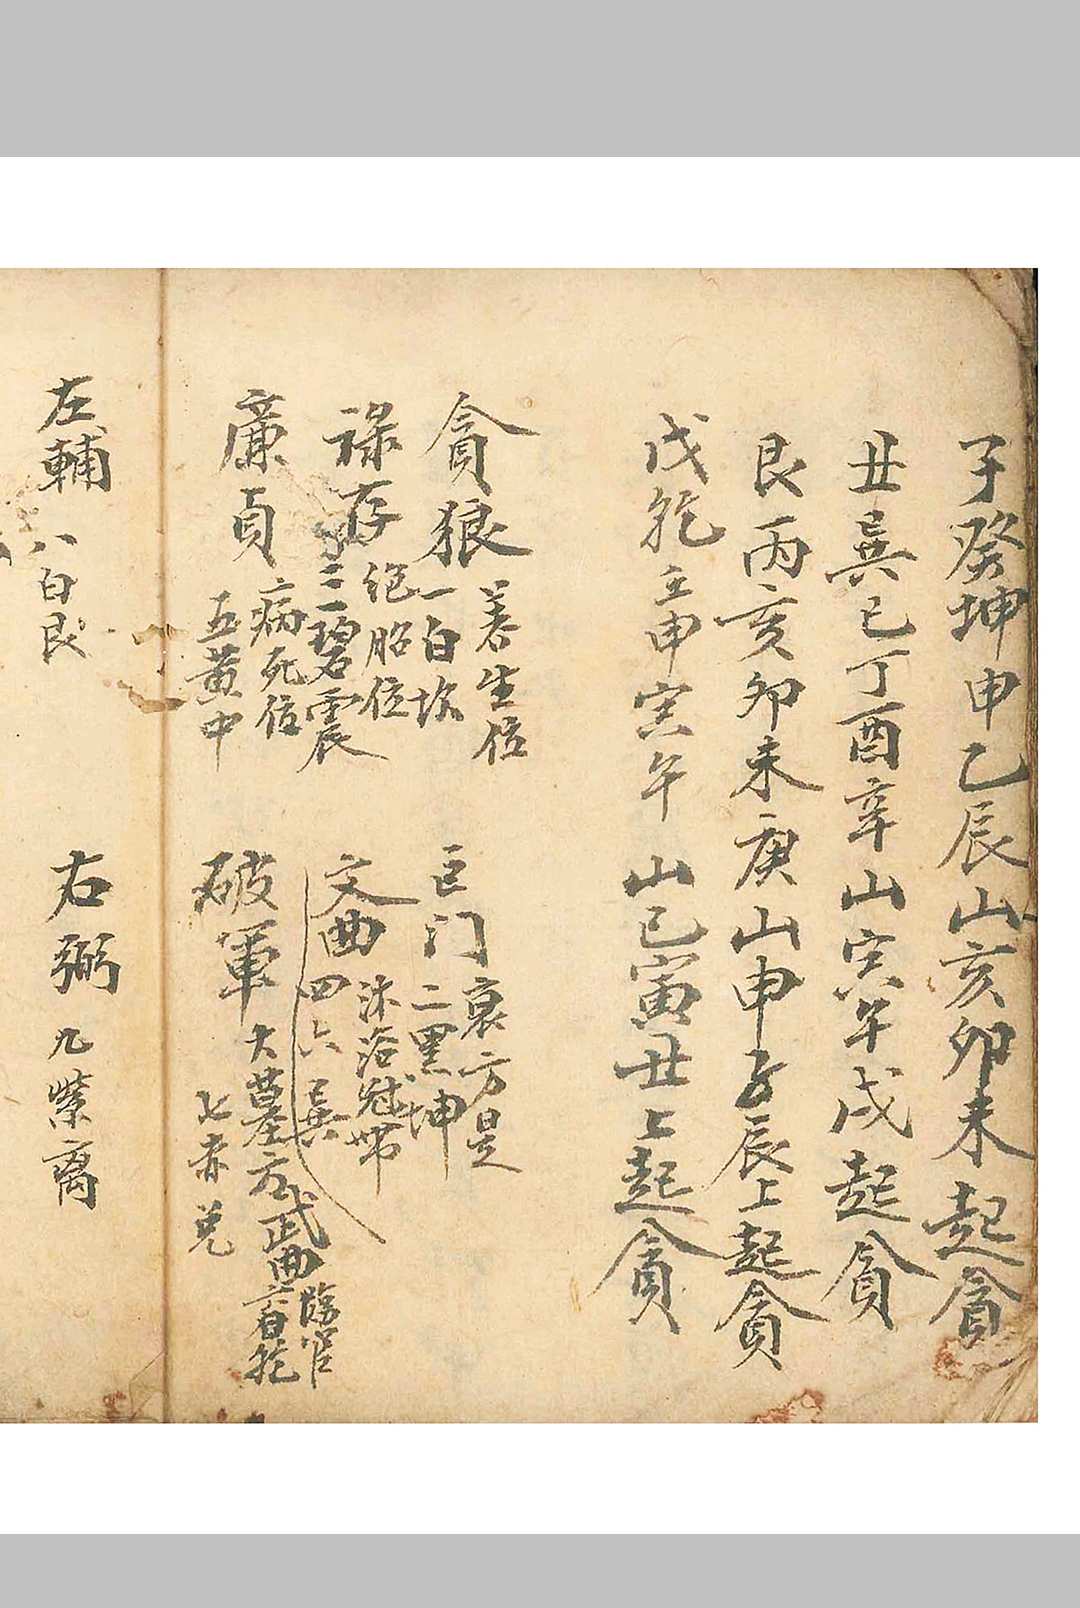 子癸坤申乙辰山亥卯未起貪
丑巽巳丁酉辛山寅午戌起貪
艮丙亥卯未庚山申子辰上起貪
戌乾壬申寅午山巳寅丑上起貪
貪狼
養生位
一白坎
巨门
衰方是
二黑坤
祿存
绝胎位
三碧震
文曲
沐浴冠带
四六巽
廉貞
病死位
五黄中
破軍
大墓方
七赤兑
武曲
臨官
六白乾
左輔 八白艮
右弼 九紫离